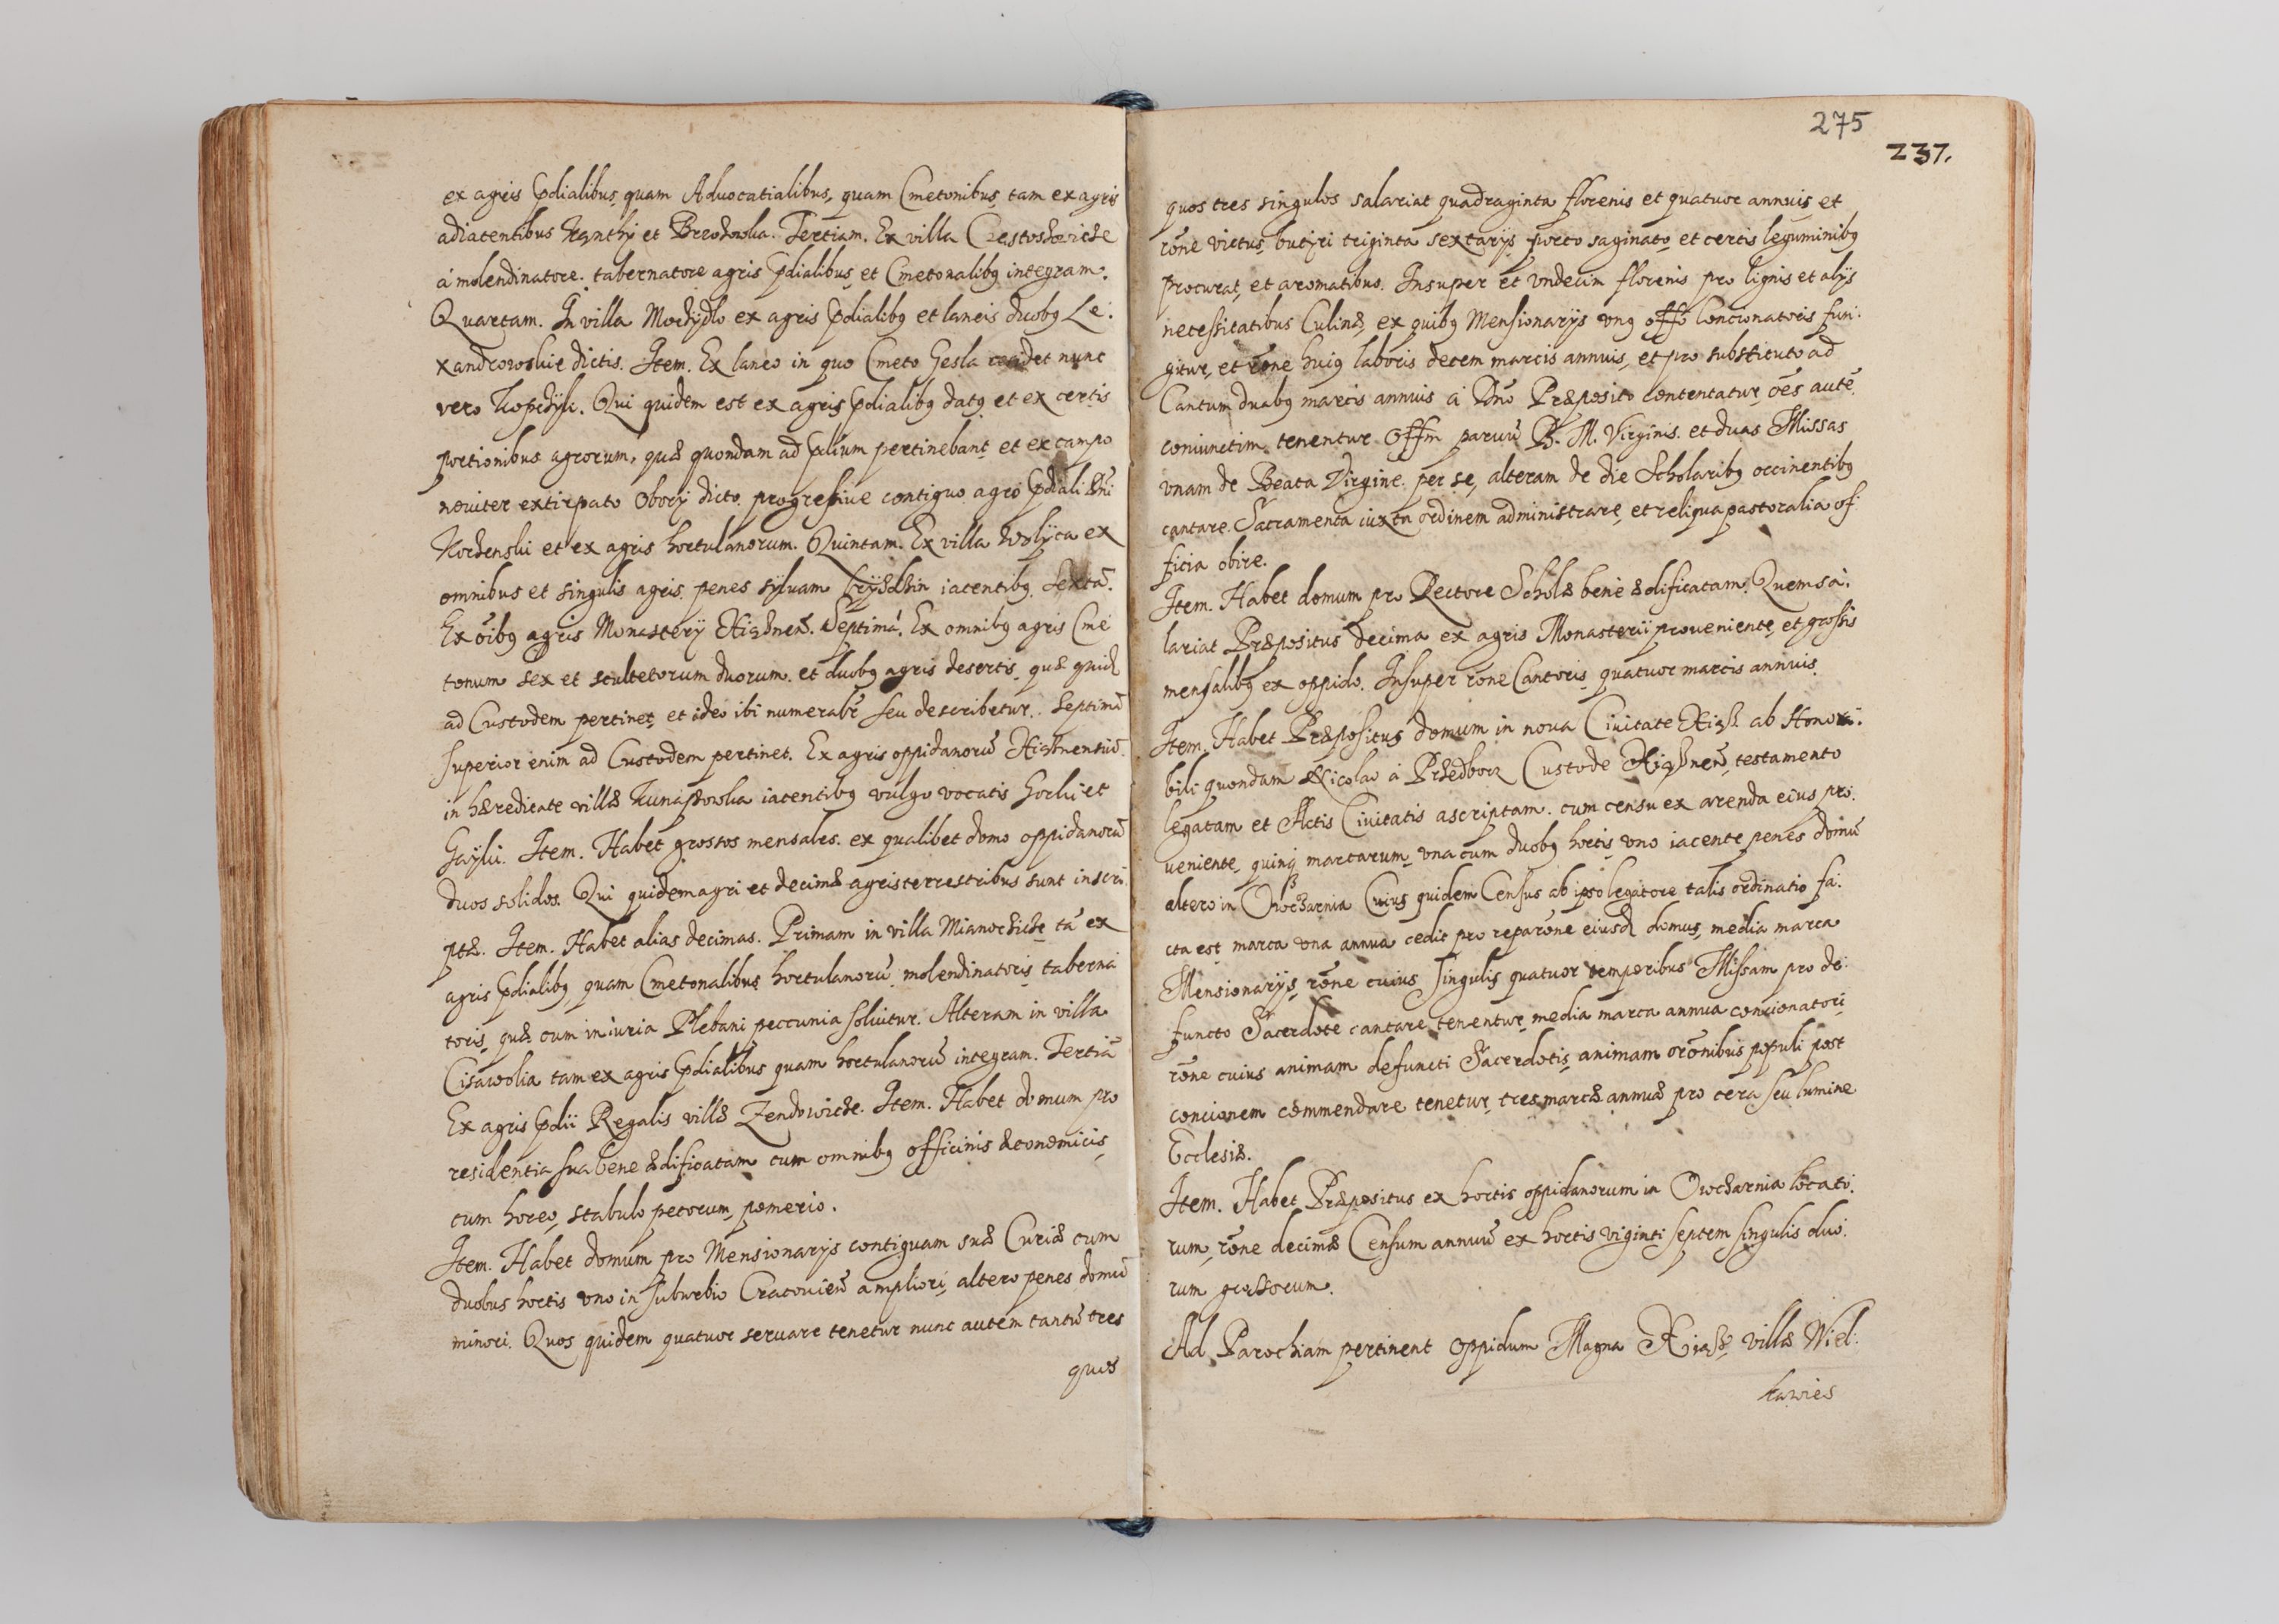 ex agris Pdialibus, quam Aduocatialibus, quam Cmetonibus, tam ex agris
adiacentibus Kąnthy et Brzozowka. Tertiam. Ex villa Crzestoszowicze
à molendinatore. tabernatore agris Pdialibus, et Cmetonalibq integram.
Quartam. In villa Moczydlo ex agris Pdialibq et laneis duobq Le:
xandrowskie dictis. Item. Ex laneo in quo Cmeto Gesla nunc
vero Kopczysk. Qui quidem est ex agris Pdialibq datq et ex certis
portionibus agrorum, quæ quondam ad Pdium pertinebant et ex campo
nouiter extirpato Obory dicto, progressiue contiguo agro Pdiali Dni
Kordenski et ex agris hortulanorum. Quintam. Ex villa Wolyca ex
omnibus et singulis agris, penes syluam iacentibq. Sextā.
Ex oibq agris Monasterij Xiąznen̄. Septimā. Ex omnibq agris Cme
tonum sex et scultetorum duorum. et duobq agris desertis, quæ quid
ad Custodem pertinet, et ideo ibi numerabr̄ seu describetur. Septimū
superior enim ad Custodem pertinet. Ex agris oppidanorū Xiąznensiū
in hæreditate villæ iacentibq vulgo vocatis Gorki et
Gayki. Item. Habet grossos mensales. ex qualibet domo oppidanorū
duos solidos. Qui quidem agri et decimæ agris terrestribus sunt inscri
ptæ. Item. Habet alias decimas. Primam in villa Mianocicze tā ex
agris Pdialibq, quam Cmetonalibus hortulanorū, molendinatoris, taberna
toris, quæ cum iniuria Plebani peccunia soluitur. Alteram in villa
Cisawolia tam ex agris Pdialibus quam hortulanorū integram. Tertiā
Ex agris Pdii Regalis villæ Zendowicze. Item. Habet domum pro
residentia sua bene ædificatam cum omnibq officinis æconomicis,
cum horeo, stabulo pecorum, pomerio.
Item. Habet domum pro Mensionarijs contiguam suæ Curiæ cum
duobus hortis uno in suburbio Cracouien̄ ampliori, altero penes domū
minori. Quos quidem quatuor seruare tenetur nunc autem tantū tres
quos
275
237.
quos tres singulos salariat quadraginta florenis et quatuor annuis, et
rōne victus, butyri triginta sextarijs porco saginato, et certis leguminibq
procurat, et aromatibus. Insuper et vndecim florenis pro lignis et alijs
necessitatibus Culinæ, ex quibq Mensionarijs vnq offō Concionatoris fun:
gitur, et rōne huiq laboris decem marcis annuis, et pro substituto ad
Cantum duabq marcis annuis à Dnō Præposito contentatur, oēs autē
coniunctim tenentur Offm paruū B. M. Virginis. et duas Missas
vnam de Beata Virgine per se, alteram de die Scholaribq occinentibq
cantare. Sacramenta iuxta ordinem administrare, et reliqua pastoralia of
ficia obire.
Item. Habet domum pro Rectore Scholæ benè ædificatam. Quem sa:
lariat Præpositus decima ex agris Monasterii proueniente, et grossis
mensalibq ex oppido. Insuper rōne Cantoris, quatuor marcis annuis.
Item. Habet Præpositus domum in noua Ciuitate Xiąz ab Honora:
bili quondam Nicolao à Przedborz Custode Xiąznen̄, testamento
legatam et Actis Ciuitatis ascriptam. cum censu ex arenda eius pro:
ueniente, quinq marcarum, vna cum duobq hortis, vno iacente penes domū
altero in Owczarnia Cuius quidem Census ab ipso legatore talis ordinatio fa:
cta est, marca vna annua cedit pro reparōne eiusd domus, media marca
Mensionarijs, rōne cuius singulis quatuor temporibus Missam pro de:
functo Sacerdote cantare tenentur, media marca annua concionatori
rōne cuius animam defuncti Sacerdotis, animam orōnibus populi post
concionem commendare tenetur, tres marcæ annuæ pro cera seu lumine
Ecclesiæ.
Item. Habet Præpositus ex hortis oppidanorum in Owczarnia locato:
rum, rōne decimæ Censum annuū ex hortis viginti septem singulis duo:
rum grossorum.
Ad Parochiam pertinent oppidum Magna Xiąz, villæ Wiel:
kawies